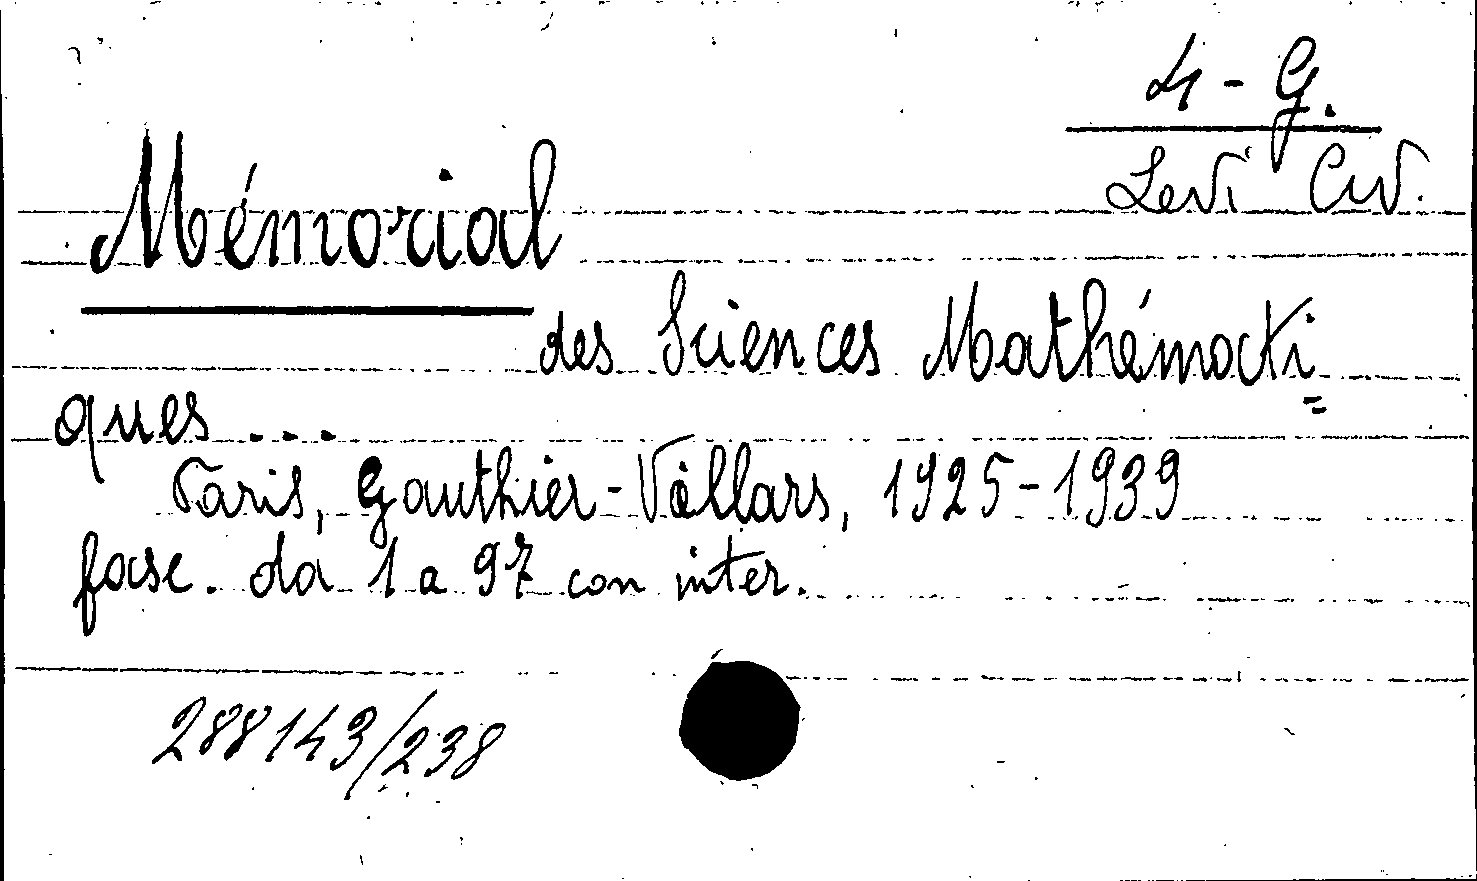 4-G.
Levi Civ.
Mémorial
des Sciences Mathémati=
ques...
Paris, Gauthier-Villars, 1925-1939
fasc. da 1 a 97 con inter.
288143/238